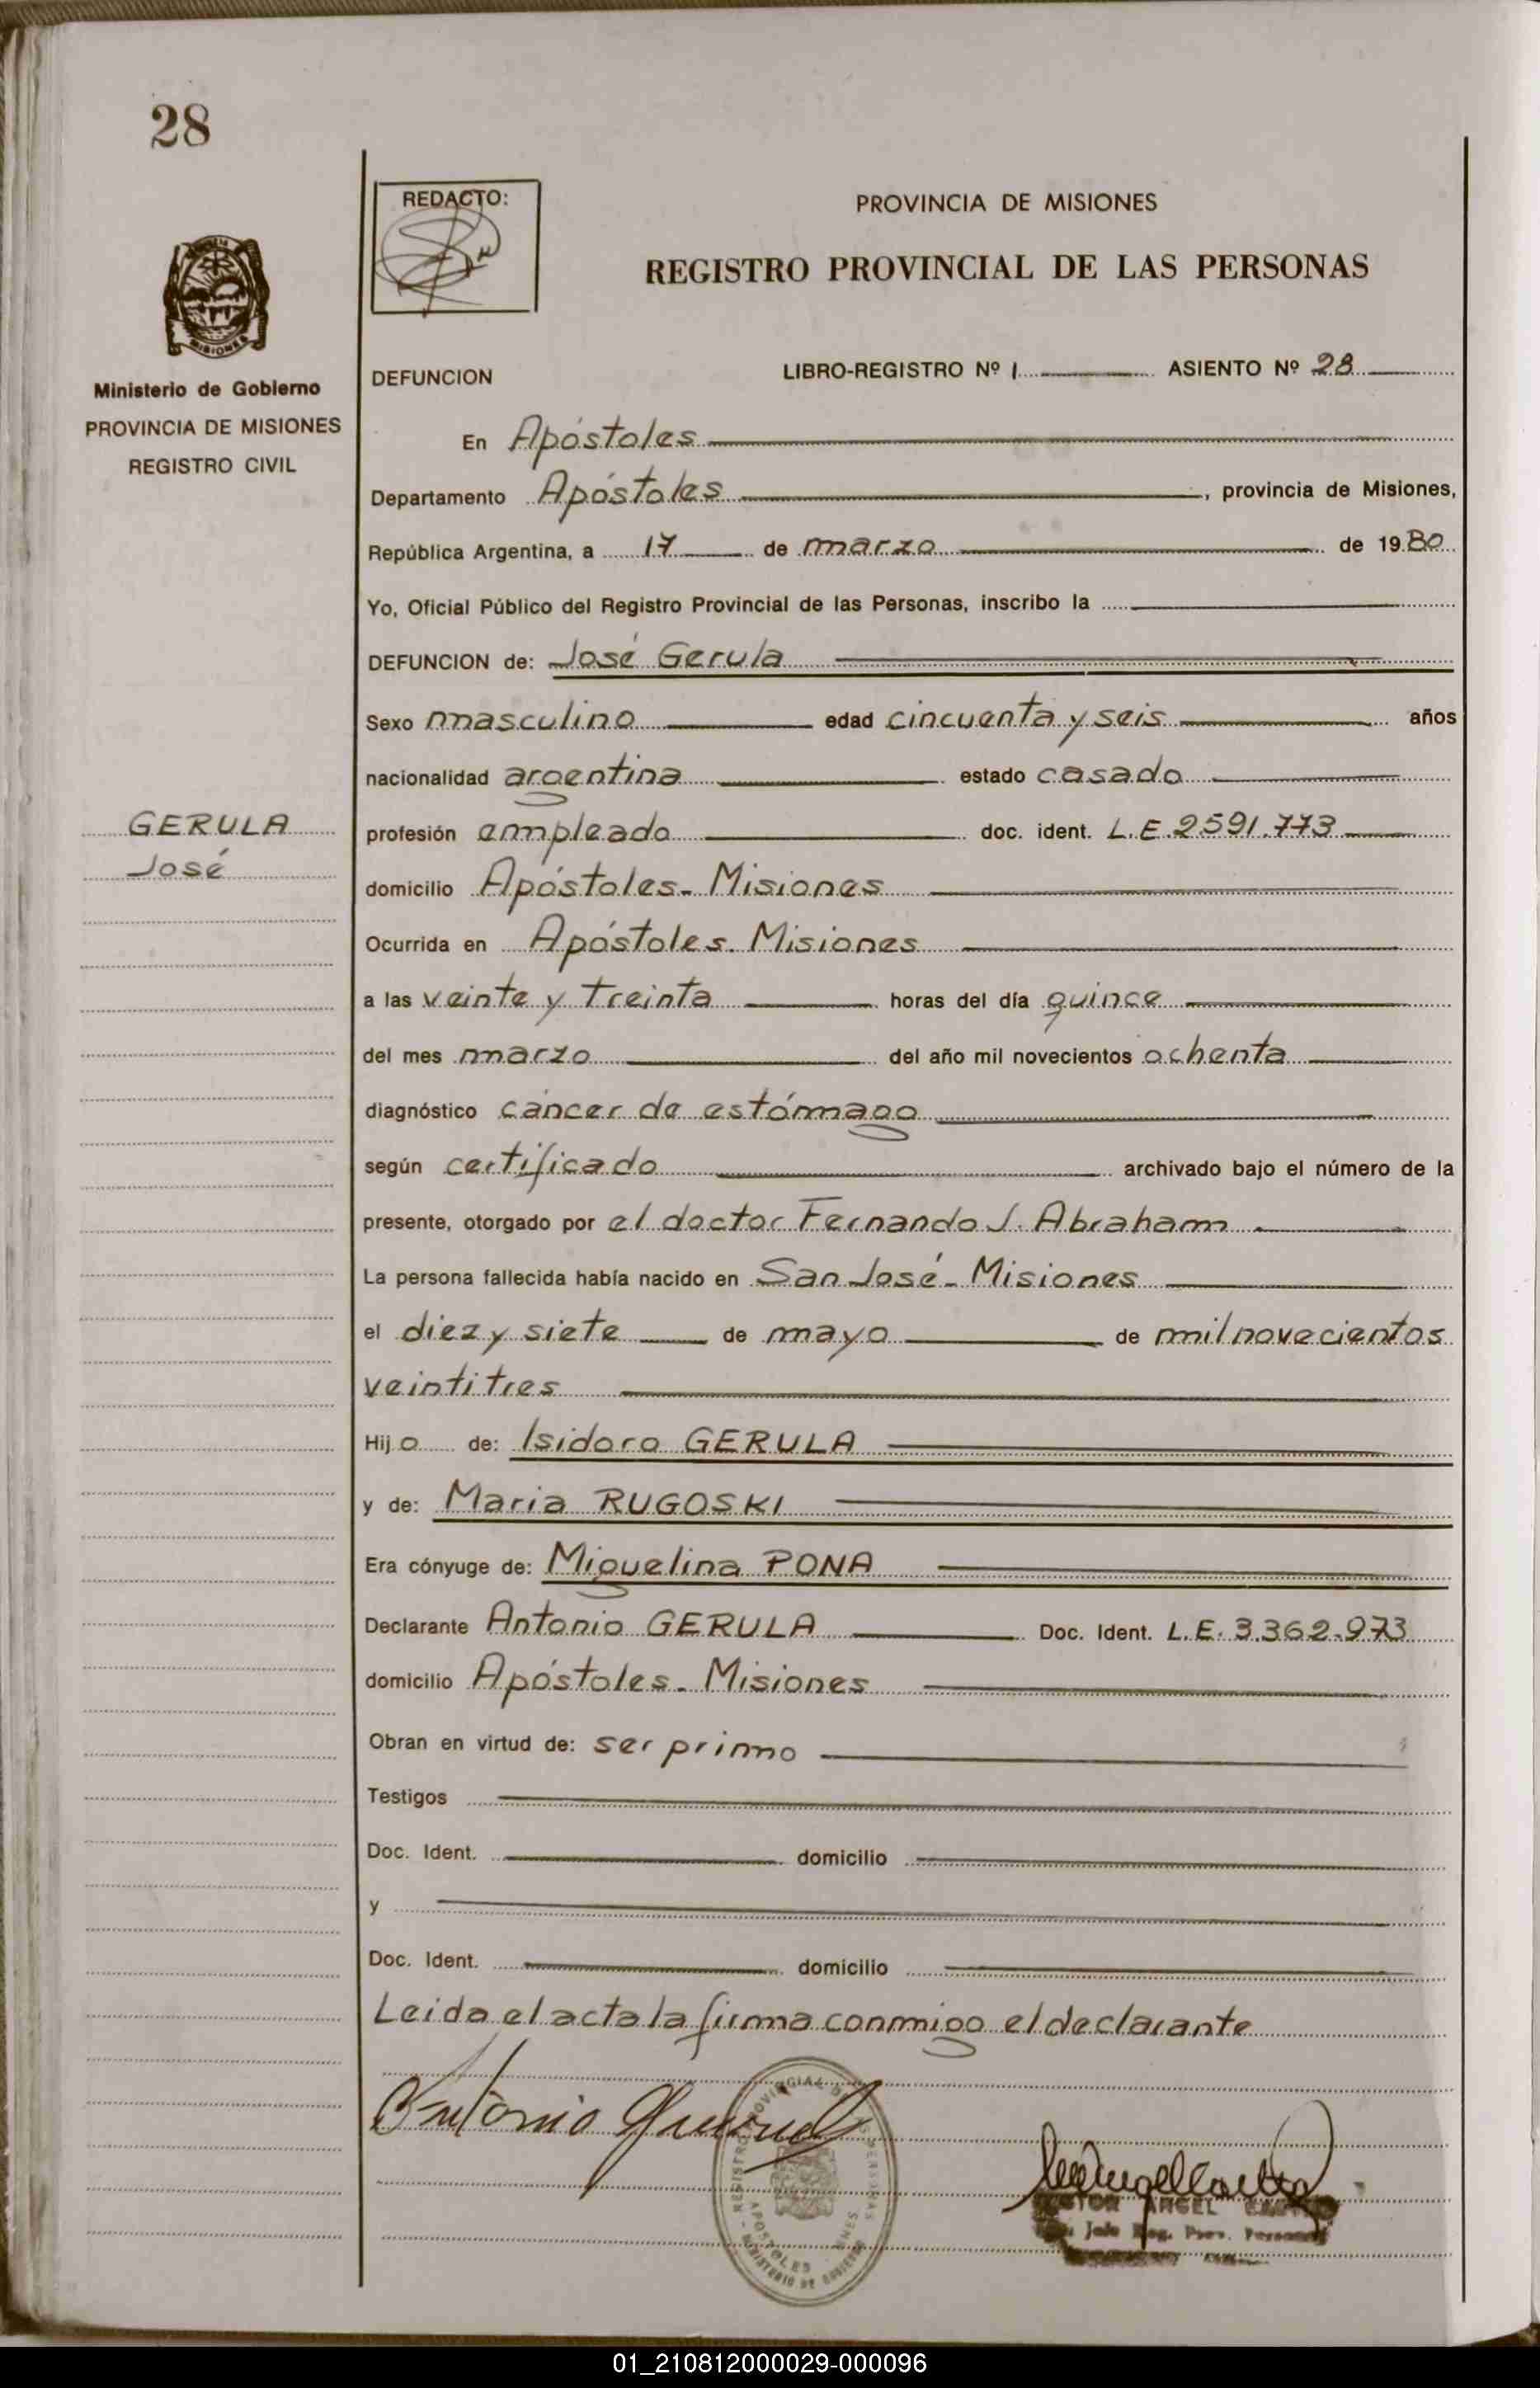 28
REDACTO:
PROVINCIA DE MISIONES
REGISTRO PROVINCIAL DE LAS PERSONAS
MISIONES
Ministerio de Gobierno
PROVINCIA DE MISIONES
REGISTRO CIVIL
DEFUNCION LIBRO-REGISTRO Nº 1 ASIENTO Nº 28
En Apóstoles
Departamento Apóstoles, provincia de Misiones,
República Argentina, a 17 de marzo de 1980
Yo, Oficial Público del Registro Provincial de las Personas, inscribo la
DEFUNCION de: José Gerula
Sexo masculino edad cincuenta y seis años
nacionalidad argentina estado casado
GERULA
José
profesión empleado doc. ident. L.E. 2591.773
domicilio Apóstoles- Misiones
Ocurrida en Apóstoles. Misiones
a las veinte y treinta horas del día quince
del mes marzo del año mil novecientos ochenta
diagnóstico cáncer de estómago
según certificado archivado bajo el número de la
presente, otorgado por el doctor Fernando J. Abraham
La persona fallecida había nacido en San José- Misiones
el diez y siete de mayo de mil novecientos
veintitres
Hijo de: Isidoro GERULA
y de: Maria RUGOSKI
Era cónyuge de: Miguelina PONA
Declarante Antonio GERULA Doc. Ident. L.E. 3.362.973
domicilio Apóstoles- Misiones
Obran en virtud de: ser primo
Testigos
Doc. Ident. domicilio
y
Doc. Ident. domicilio
Leida el acta la firma conmigo el declarante
Antonio
REGISTRO PROVINCIAL DE LAS PERSONAS
APOSTOLES
MINISTERIO DE GOBIERNO
ANGEL
Jefe Reg. Prov. Personas
01_210812000029-000096